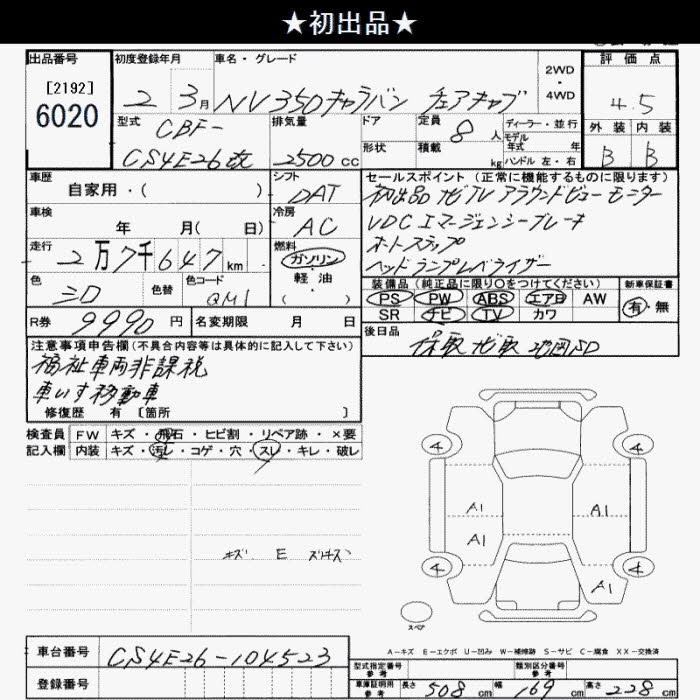 ★初出品★
出品番号 初度登録年月 車名・グレード 評価点
[2192]
6020
2 3月 NV350キャラバン チェアキャブ
2WD・4WD
4.5
型式 排気量 ドア 定員 ディーラー・並行 外装 内装
CBF-
CS4E26改 2500cc
形状 積載 kg
8人
モデル年式 年
ハンドル 左・右
B B
車歴 シフト セールスポイント(正常に機能するものに限ります)
自家用・( )
DAT
初出品 ナビTV アラウンドビューモニター
車検 冷房
年 月( 日)
AC
VDC エマージェンシーブレーキ
走行 燃料
2万7千647km
ガソリン
軽・油
( )
オートステップ
ヘッドランプレベライザー
色 色替 色コード
シロ QM1
装備品(純正品に限り○をつけてください) 新車保証書
PS PW ABS エアB AW
SR ナビ TV カワ
有・無
R券 9990円 名変期限 月 日
後日品
保取 ナビ取 地図SD
注意事項申告欄(不具合内容等は具体的に記入して下さい)
福祉車両非課税
車いす移動車
修復歴 有 〔箇所 〕
検査員 FW キズ・飛石・ヒビ割・リペア跡・×要
記入欄 内装 キズ・汚レ・コゲ・穴・スレ・キレ・破レ
キズ E
4 4
A1 A1
A1
4 4
A1
スペア
A-キズ E-エクボ U-凹み W-補修跡 S-サビ C-腐食 XX-交換済
車台番号 CS4E26-104523
登録番号
型式指定番号 参考 類別区分番号 参考
車庫証明用 参考 長さ 508cm 幅 169cm 高さ 228cm